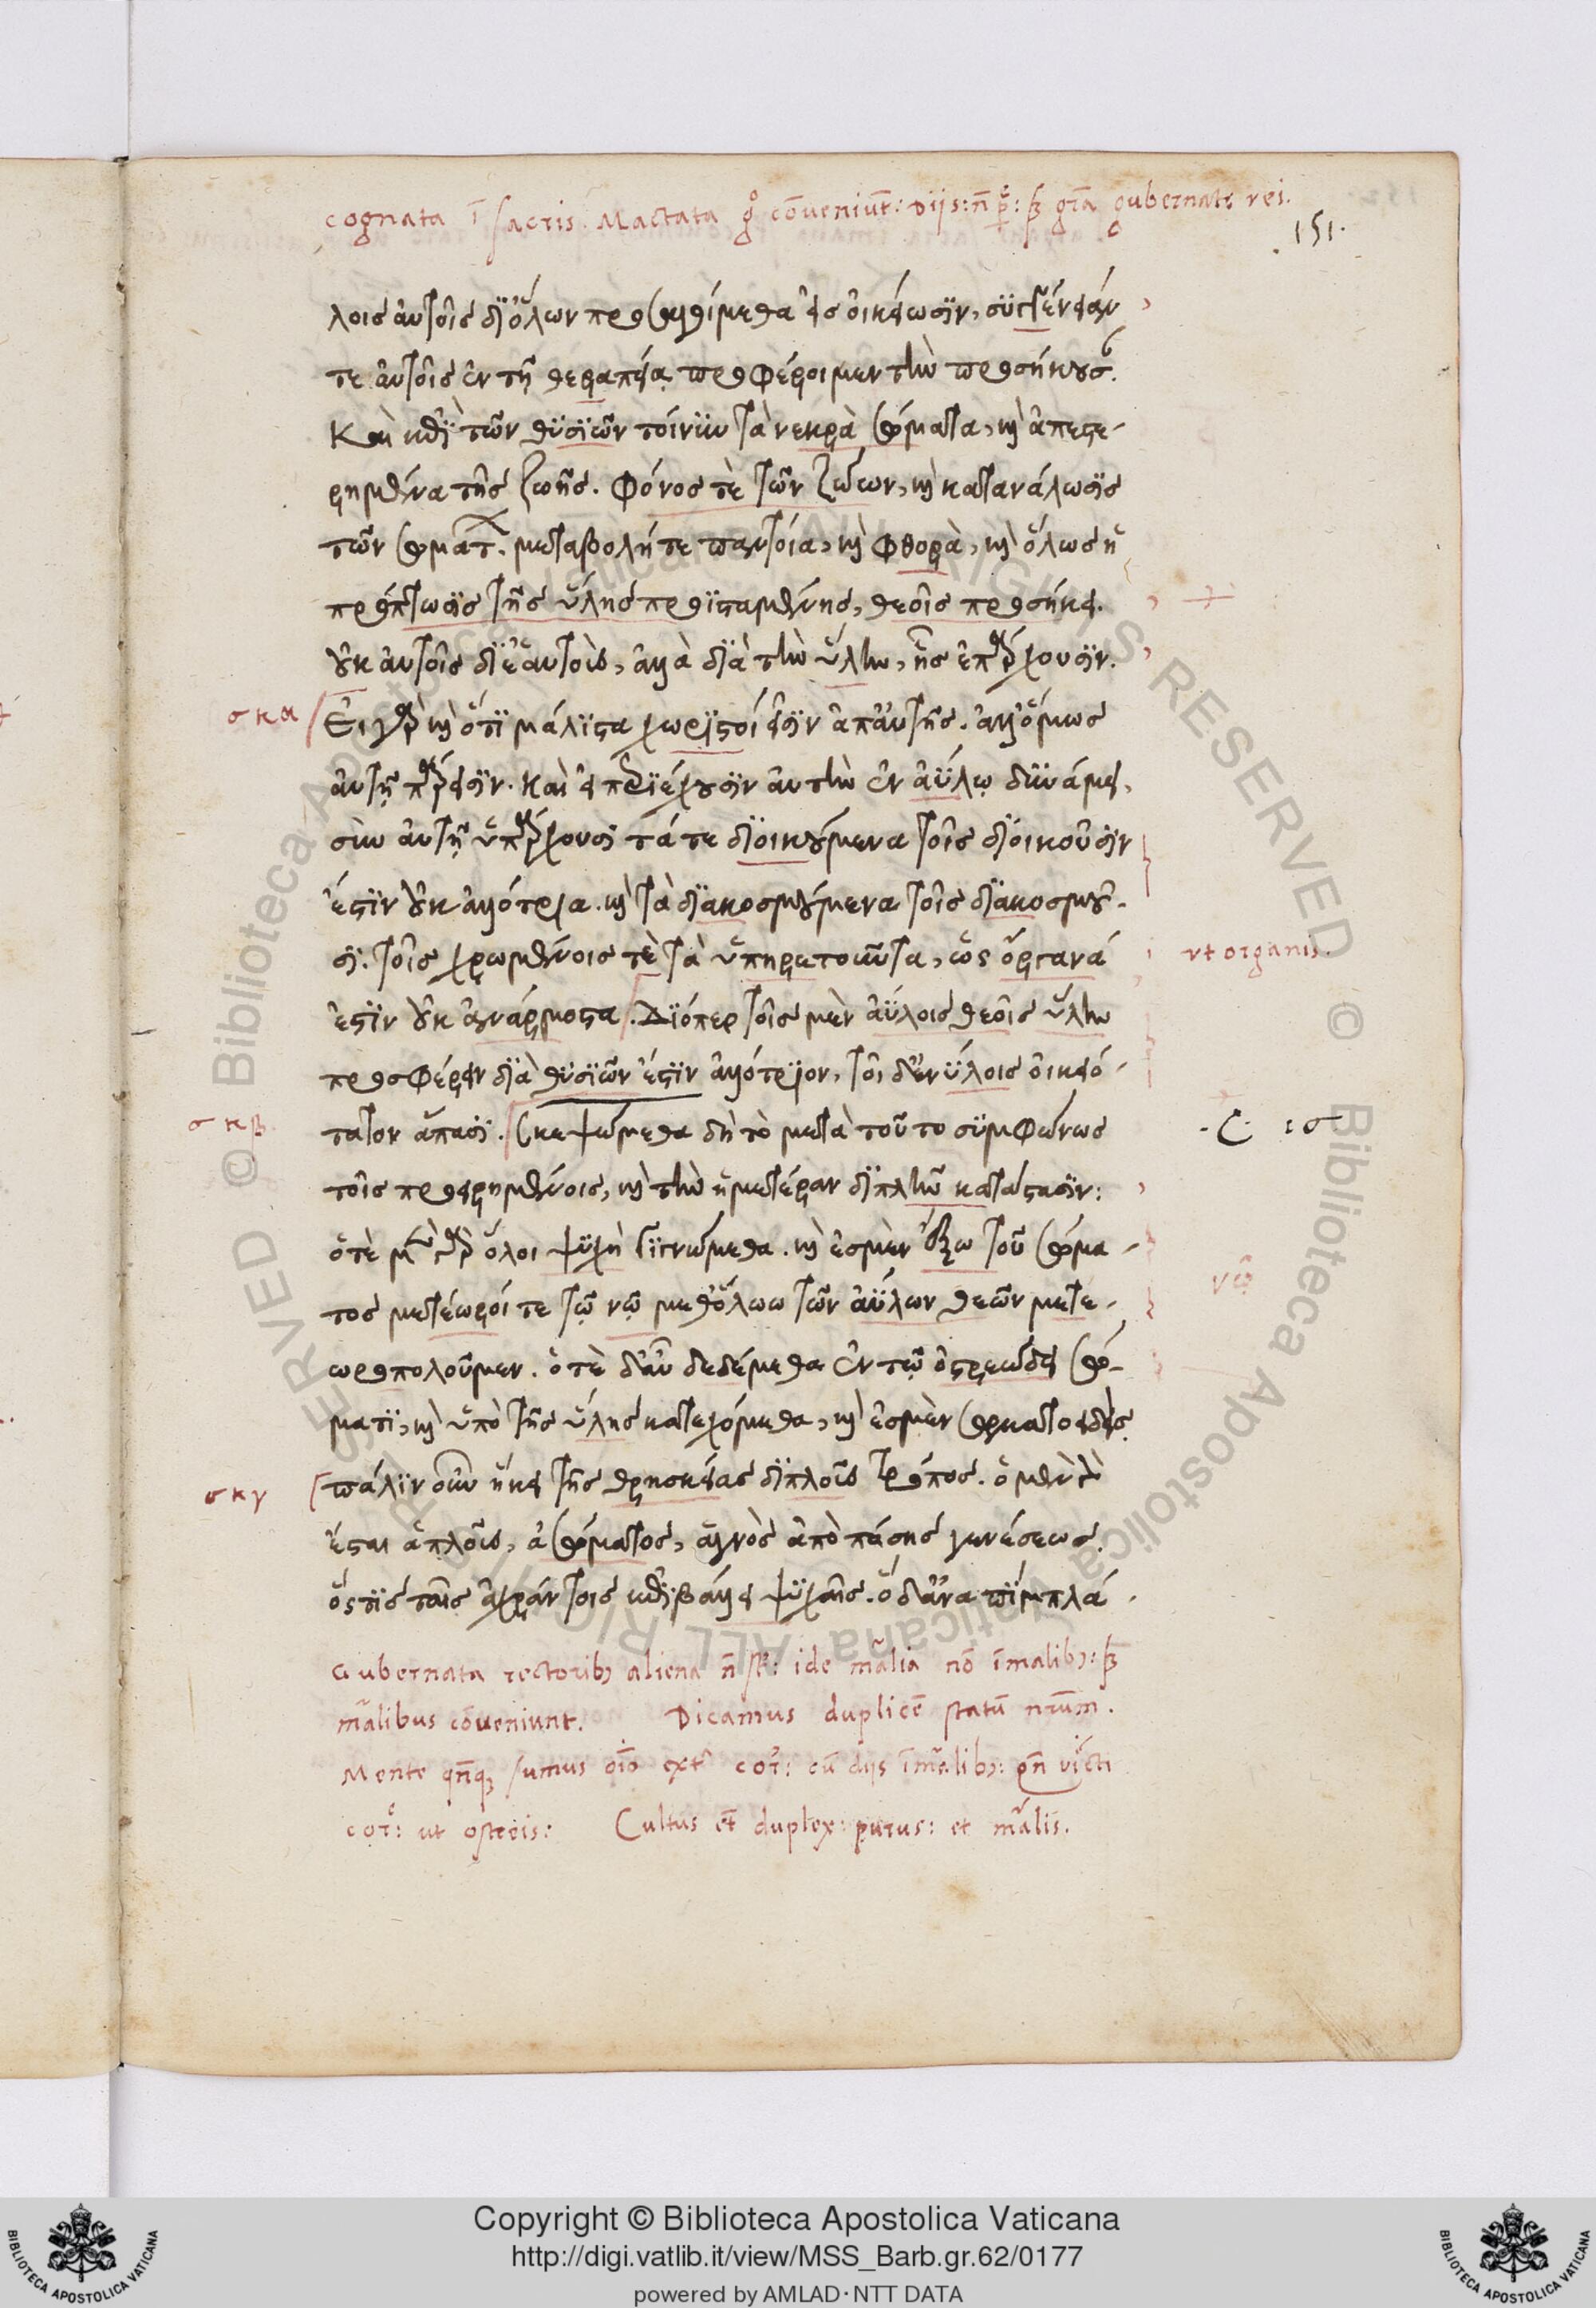 cognata ī sacris. Mactata gͦ cōveniūt: Diis: n̄ p̱: sꝫ gr̄a gubernatę rei.
.151.
λοις αὐτοῖς δι' ὅλων προσαγοίμεθα εἰς οἰκείωσιν, συγγένειάν
τε αὐτοῖς ἐν τῇ θεραπείᾳ προσφέροιμεν τὴν προσήκουσαν.
Καὶ ἐπὶ τῶν θυσιῶν τοίνυν τὰ νεκρὰ σώματα, καὶ ἀπεστε-
ρημένα τῆς ζωῆς. φόνος τὲ τῶν ζώων, καὶ κατανάλωσις
τῶν σωμάτων. μεταβολή τε παντοία, καὶ φθορὰ, καὶ ὅλως ἡ
πρόπτωσις τῆς ὕλης προϊσταμένης, θεοῖς προσήκει.
οὐκ αὐτοῖς δι' ἑαυτοὺς, ἀλλὰ διὰ τὴν ὕλην, ἧς ἐπάρχουσιν.
σκα
Εἰ γὰρ καὶ ὅτι μάλιστα χωριστοί εἰσιν ἀπ' αὐτῆς. ἀλλ' ὅμως
αὐτῇ πάρεισιν. Καὶ εἰ περιέχουσιν αὐτὴν ἐν ἀΰλῳ δυνάμει,
σὺν αὐτῇ ὑπάρχουσι τά τε διοικούμενα τοῖς διοικοῦσιν
ἐστὶν οὐκ ἀλλότρια. καὶ τὰ διακοσμούμενα τοῖς διακοσμοῦ-
σι. τοῖς χρωμένοις τὲ τὰ ὑπηρετοῦντα, ὡς ὄργανά
vt organis.
ἐστιν οὐκ ἀνάρμοστα. Διόπερ τοῖς μὲν ἀΰλοις θεοῖς ὕλην
προσφέρειν διὰ θυσιῶν ἐστὶν ἀλλότριον, τοῖς δ' ἐνύλοις οἰκειό-
σκβ
τατον ἅπασι. Σκεψώμεθα δὴ τὸ μετὰ τοῦτο συμφώνως
.C. ισ
τοῖς προειρημένοις, καὶ τὴν ἡμετέραν διπλῆν κατάστασιν:
ὅτὲ μὲν γὰρ ὅλοι ψυχὴ γιγνώμεθα. καὶ ἐσμὲν ἔξω τοῦ σώμα-
νῷ
τος μετέωροί τε τῷ νῷ μεθ' ὅλων τῶν ἀΰλων θεῶν μετε-
ωροπολοῦμεν. ὁτὲ δ' αὖ δεδέμεθα ἐν τῷ ὀστρεώδει σώ-
ματι, καὶ ὑπὸ τῆς ὕλης κατεχόμεθα, καὶ ἐσμὲν σωματοειδεῖς.
σκγ
πάλιν οὖν ἥκει τῆς θρησκείας διπλοῦς τρόπος. ὁ μὲν γὰρ
ἔσται ἁπλοῦς, ἀσώματος, ἁγνὸς ἀπὸ πάσης γενέσεως.
ὅστις ταῖς ἀχράντοις ἐπιβάλλει ψυχαῖς. ὁ δ' ἀναπιμπλά-
Gubernata rectoribꝫ aliena n̄ st: ide m̄alia nō īmalibꝫ: sꝫ
m̄alibus cōveniunt. Dicamus duplicē statū nrūm.
Mente qn̄qꝫ sumus oīo extᵃ cor: cū diis īm̄alibꝫ: qn̄ vīcti
cor: ut ostreis: Cultus et̄ duplex: purus: et m̄alis.
Copyright © Biblioteca Apostolica Vaticana
http://digi.vatlib.it/view/MSS_Barb.gr.62/0177
powered by AMLAD·NTT DATA